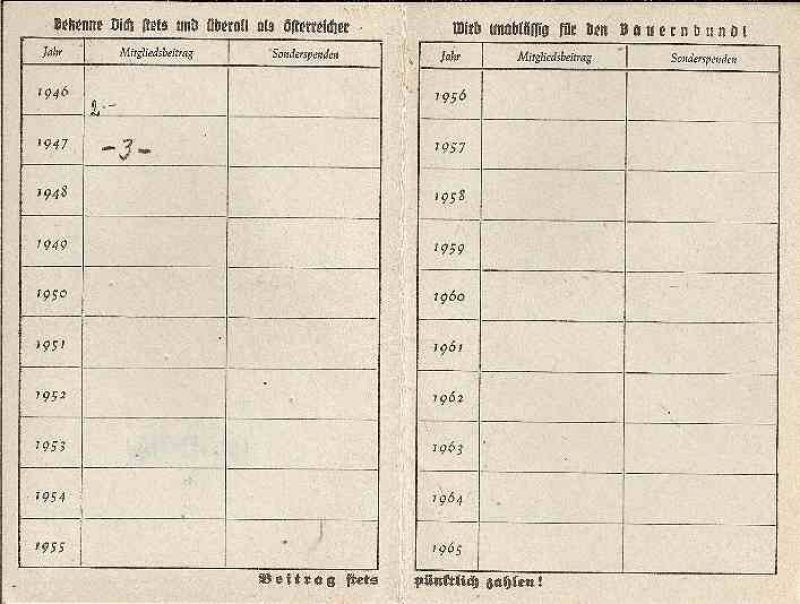 Bekenne Dich stets und überall als Österreicher
Jahr Mitgliedsbeitrag Sonderspenden
1946 2.-
1947 -3-
1948
1949
1950
1951
1952
1953
1954
1955
Beitrag stets
Wirb unablässig für den Bauernbund!
Jahr Mitgliedsbeitrag Sonderspenden
1956
1957
1958
1959
1960
1961
1962
1963
1964
1965
pünktlich zahlen!